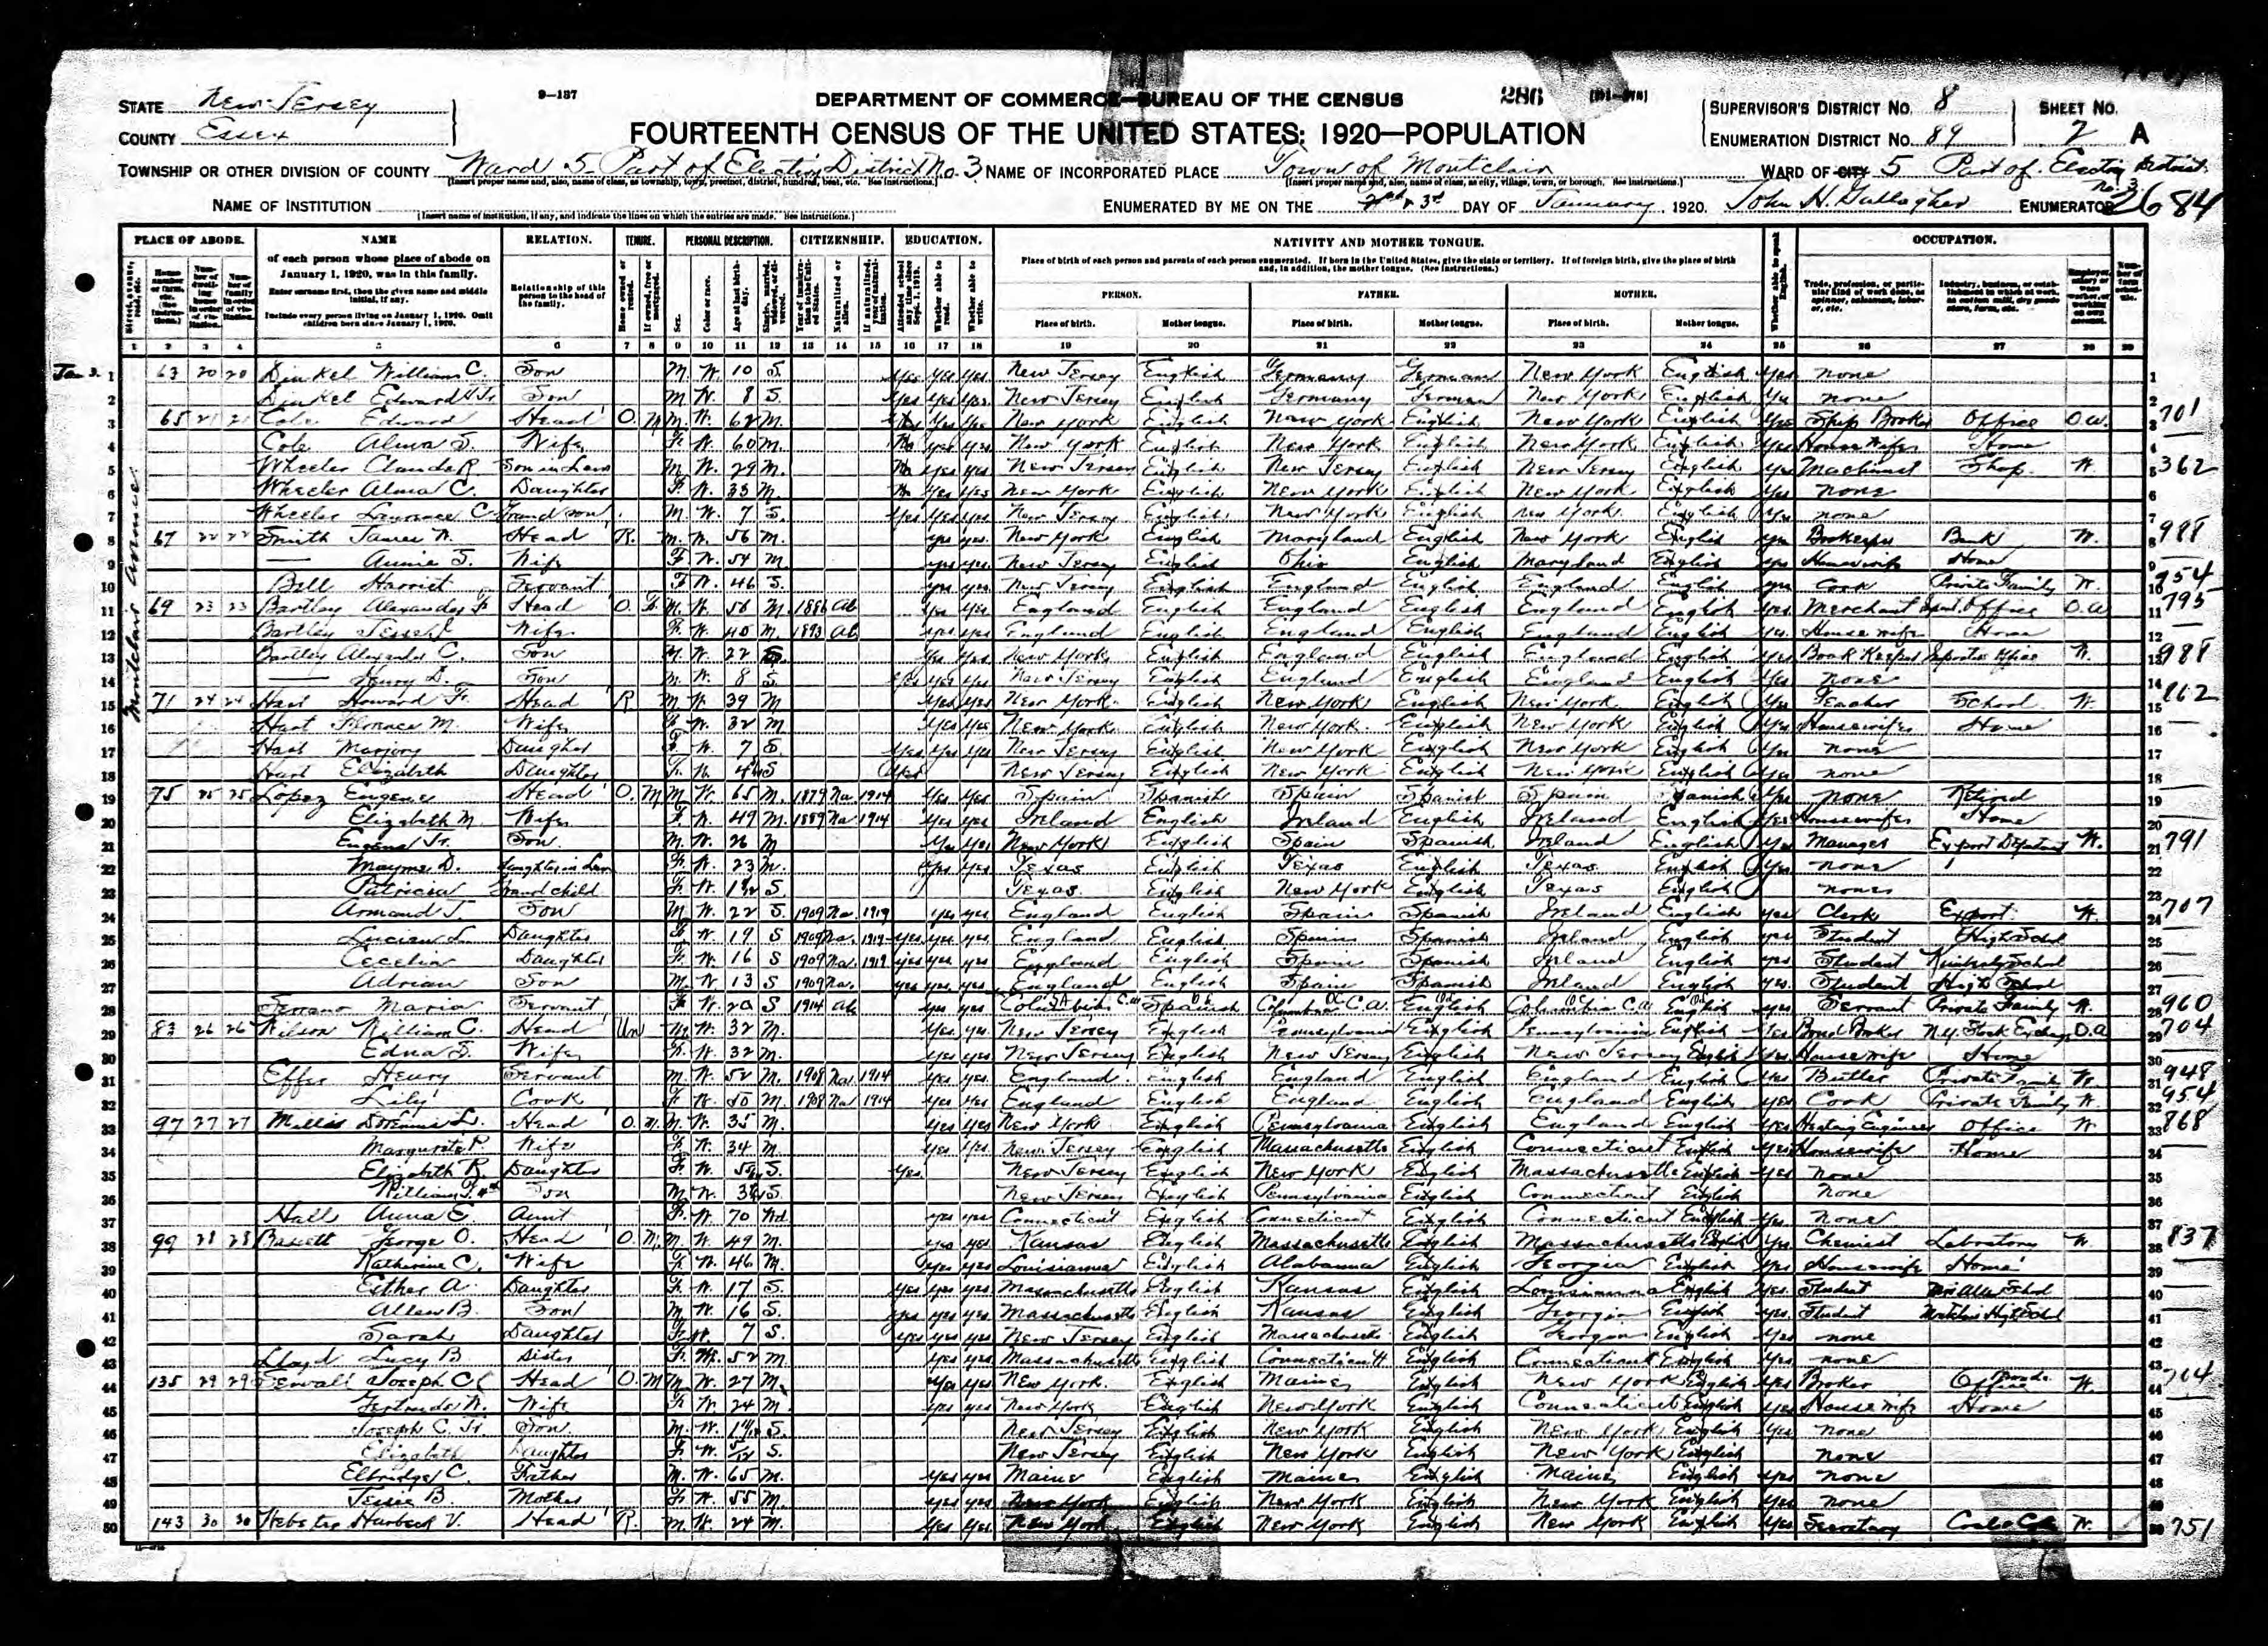 STATE New Jersey
COUNTY Essex
9-137
DEPARTMENT OF COMMERCE—BUREAU OF THE CENSUS
286
FOURTEENTH CENSUS OF THE UNITED STATES: 1920—POPULATION
SUPERVISOR'S DISTRICT NO. 8
ENUMERATION DISTRICT NO. 89
SHEET NO. 2 A
TOWNSHIP OR OTHER DIVISION OF COUNTY Ward 5 Part of Election District No. 3
[Insert proper name and, also, name of class, as township, town, precinct, district, hundred, beat, etc. See instructions.]
NAME OF INCORPORATED PLACE Town of Montclair
[Insert proper name and, also, name of class, as city, village, town, or borough. See instructions.]
WARD OF CITY 5 Part of Election District No. 3
NAME OF INSTITUTION
[Insert name of institution, if any, and indicate the lines on which the entries are made. See instructions.]
ENUMERATED BY ME ON THE 2d & 3d DAY OF January, 1920. John H. Gallagher ENUMERATOR
2684
PLACE OF ABODE. NAME RELATION. TENURE. PERSONAL DESCRIPTION. CITIZENSHIP. EDUCATION. NATIVITY AND MOTHER TONGUE. OCCUPATION.
of each person whose place of abode on January 1, 1920, was in this family.
Enter surname first, then the given name and middle initial, if any.
Include every person living on January 1, 1920. Omit children born since January 1, 1920.
Relationship of this person to the head of the family.
Place of birth of each person and parents of each person enumerated. If born in the United States, give the state or territory. If of foreign birth, give the place of birth and, in addition, the mother tongue. (See instructions.)
PERSON. FATHER. MOTHER.
Place of birth. Mother tongue. Place of birth. Mother tongue. Place of birth. Mother tongue.
1 2 3 4 5 6 7 8 9 10 11 12 13 14 15 16 17 18 19 20 21 22 23 24 25 26 27 28 29
Montclair Avenue
Jan 3. 1 63 20 20 Dinkel William C. Son M. W. 10 S. Yes Yes Yes New Jersey English Germany German New York English Yes none
2 Dinkel Edward Jr Son M W. 8 S. Yes Yes Yes New Jersey English Germany German New York English Yes none
3 65 21 21 Cole Edward Head O. M M. W. 62 M. No Yes Yes New York English New York English New York English Yes Ship Broker Office O.a. 701
4 Cole Alma S. Wife F. W. 60 M. No Yes Yes New York English New York English New York English Yes Housewife Home
5 Wheeler Claude R Son in Law M. W. 29 M. No Yes Yes New Jersey English New Jersey English New Jersey English Yes Machinist Shop W. 362
6 Wheeler Alma C. Daughter F. W. 33 M. No Yes Yes New York English New York English New York English Yes none
7 Wheeler Laurence C Grandson M. W. 7 S. Yes Yes Yes New Jersey English New York English New York English Yes none
8 67 22 22 Smith James W. Head R. M. W. 56 M. Yes Yes New York English Maryland English New York English Yes Bookkeeper Bank W. 988
9 —— Annie S. Wife F. W. 54 M Yes Yes New Jersey English Ohio English Maryland English Yes Housewife Home
10 Bell Harriet Servant F W. 46 S. Yes Yes New Jersey English England English England English Yes Cook Private Family W. 954
11 69 23 23 Bartley Alexander F. Head O. F. M. W. 50 M. 1886 Al Yes Yes England English England English England English Yes Merchant Office O.a 795
12 Bartley Jessie Wife F. W. 45 M. 1893 Al Yes Yes England English England English England English Yes Housewife Home
13 Bartley Alexander C. Son M. W. 22 S. Yes Yes New York English England English England English Yes Book Keeper Office W. 988
14 —— Henry D. Son M. W. 8 S. Yes Yes Yes New Jersey English England English England English Yes none
15 71 24 24 Hart Howard F. Head R M W. 39 M Yes Yes New York English New York English New York English Yes Teacher School W. 862
16 Hart Florence M. Wife F. W. 32 M Yes Yes New York English New York English New York English Yes Housewife Home
17 Hart Marjory Daughter F. W. 7 S. Yes Yes Yes New Jersey English New York English New York English Yes none
18 Hart Elizabeth Daughter F. W. S Yes New Jersey English New York English New York English Yes none
19 75 25 25 Lopez Eugene Head O. M M W. 65 M. 1879 Na 1914 Yes Yes Spain Spanish Spain Spanish Spain Spanish Yes none Retired
20 Elizabeth M. Wife F. W. 49 M. 1889 Na 1914 Yes Yes Ireland English Ireland English Ireland English Yes Housewife Home
21 Eugene Jr. Son M. W. 26 M Yes Yes New York English Spain Spanish Ireland English Yes Manager Export Department W. 791
22 Mayme D. daughter in Law F. W. 23 M. Yes Yes Texas English Texas English Texas English Yes none
23 Patricia Grandchild F. W. S. Texas English New York English Texas English none
24 Armand J. Son M W. 22 S. 1909 Na. 1919 Yes Yes England English Spain Spanish Ireland English Yes Clerk Export W. 707
25 Daughter F W. 19 S 1909 Na. 1919 Yes Yes Yes England English Spain Spanish Ireland English Yes Student High School
26 Cecelia Daughter F. W. 16 S 1909 Na. 1919 Yes Yes Yes England English Spain Spanish Ireland English Yes Student School
27 Adrian Son M. W. 13 S 1909 Na. Yes Yes Yes England English Spain Spanish Ireland English Yes Student High School
28 Serrano Maria Servant F. W. 20 S 1914 Al Yes Yes Spanish English Columbia C.A. English Yes Servant Private Family W. 960
29 83 26 26 Wilson William C. Head Un M. W. 32 M. Yes Yes New Jersey English Pennsylvania English Pennsylvania English Yes Bond Broker N.Y. Stock Exchange O.a 704
30 Edna S. Wife F. W. 32 M. Yes Yes New Jersey English New Jersey English New Jersey English Yes Housewife Home
31 Effer Henry Servant M W. 52 M. 1908 Na. 1914 Yes Yes England English England English England English Yes Butler Private Family W. 948
32 Lily Cook F W. 50 M. 1908 Na 1914 Yes Yes England English England English England English Yes Cook Private Family W. 954
33 97 27 27 Head O. M. M. W. 35 M. Yes Yes New York English Pennsylvania English England English Yes Heating Engineer Office W 868
34 Marguerite P. Wife F. W. 34 M. Yes Yes New Jersey English Massachusetts English Connecticut English Yes Housewife Home
35 Elizabeth R. Daughter F. W. S. Yes. New Jersey English New York English Massachusetts English Yes none
36 William Son M. W. S. New Jersey English Pennsylvania English Connecticut English None
37 Hall Anna E. Aunt F. W. 70 Wd. Yes Yes Connecticut English Connecticut English Connecticut English Yes None
38 99 28 28 Bassett George O. Head O. M. M. W. 49 M. Yes Yes Kansas English Massachusetts English Massachusetts English Yes Chemist Labratory W. 837
39 Katherine C. Wife F. W. 46 M. Yes Yes Louisianna English Alabamma English Georgia English Yes Housewife Home
40 Esther A. Daughter F. W. 17 S. Yes Yes Yes Massachusetts English Kansas English Louisianna English Yes Student School
41 Allen B. Son M. W. 16 S. Yes Yes Yes Massachusetts English Kansas English Georgia English Yes Student Montclair High School
42 Sarah Daughter F. W. 7 S. Yes Yes Yes New Jersey English Massachusetts English Georgia English Yes none
43 Lloyd Lucy B Sister F. W. 52 M Yes Yes Massachusetts English Connecticutt English Connecticut English Yes none
44 135 29 29 Sewall Joseph C Head O. M M. W. 27 M. Yes Yes New York English Maine English New York English Yes Broker Office W. 704
45 Gertrude W. Wife F. W. 24 M Yes Yes New York English New York English Connecticut English Yes Housewife Home
46 Joseph C. Jr Son M. W. S. New Jersey English New York English New York English Yes none
47 Elizabeth Daughter F. W. S. New Jersey English New York English New York English none
48 Elbridge C. Father M. W. 65 M. Yes Yes Maine English Maine English Maine English Yes none
49 Jessie B. Mother F. W. 55 M. Yes Yes New York English New York English New York English Yes none
50 143 30 30 Webster Hurbeck V. Head R. M. W. 24 M. Yes Yes New York English New York English New York English Yes Secretary W. 751